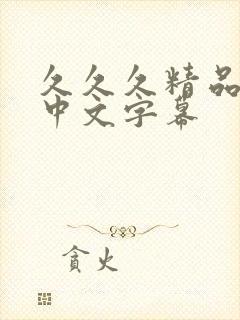 久久久精品
中文字幕
贪火